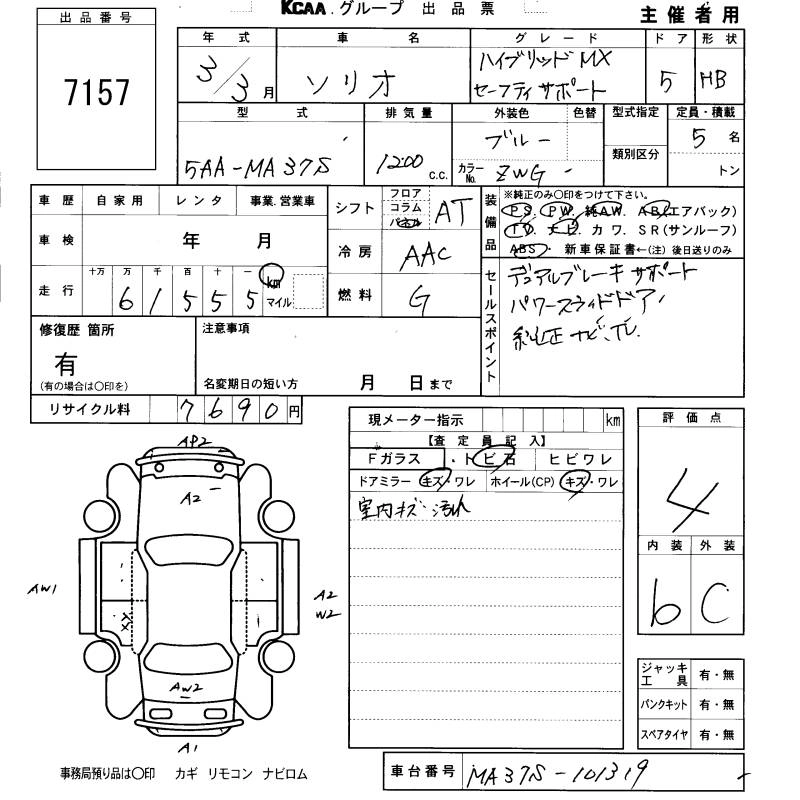 KCAA.グループ 出品票
主催者用
出品番号
7157
年式 車名 グレード ドア 形状
3/3月 ソリオ ハイブリッドMX 5 HB
セーフティサポート
型式 排気量 外装色 色替 型式指定 定員・積載
5AA-MA37S 1200 c.c. ブルー 5名
カラーNo. ZWG 類別区分 トン
車歴 自家用 レンタ 事業.営業車
車検 年 月
走行 十万 万 千 百 十 一 km マイル
6 1 5 5 5
シフト フロア コラム パネル AT
冷房 AAC
燃料 G
装備品 ※純正のみ○印をつけて下さい。
PS. PW. 純AW. AB(エアバック)
TV. ナビ. カワ. SR(サンルーフ)
ABS・ 新車保証書←(注) 後日送りのみ
セールスポイント
デュアルブレーキサポート
パワースライドドア,
純正ナビ、TV.
修復歴 箇所 注意事項
有
(有の場合は○印を) 名変期日の短い方 月 日まで
リサイクル料 7690円
現メーター指示 km
【査定員記入】
Fガラス ・トビ石 ヒビワレ
ドアミラー キズ・ワレ ホイール(CP) キズ・ワレ
室内キズ・汚れ
評価点
4
内装 外装
b C
ジャッキ工具 有・無
パンクキット 有・無
スペアタイヤ 有・無
AP2
A2
AW1
A2
W2
XX
AW2
A1
事務局預り品は○印 カギ リモコン ナビロム
車台番号 MA37S-101319